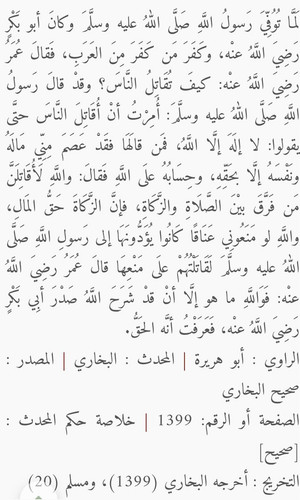 لَمَّا تُوُفِّيَ رَسولُ اللَّهِ صَلَّى اللهُ عليه وسلَّمَ وكانَ أبو بَكْرٍ
رَضِيَ اللَّهُ عنْه، وكَفَرَ مَن كَفَرَ مِنَ العَرَبِ، فَقالَ عُمَرُ
رَضِيَ اللَّهُ عنْه: كيفَ تُقَاتِلُ النَّاسَ؟ وقدْ قالَ رَسولُ
اللَّهِ صَلَّى اللهُ عليه وسلَّمَ: أُمِرْتُ أنْ أُقَاتِلَ النَّاسَ حتَّى
يقولوا: لا إلَهَ إلَّا اللَّهُ، فمَن قالَهَا فقَدْ عَصَمَ مِنِّي مَالَهُ
ونَفْسَهُ إلَّا بحَقِّهِ، وحِسَابُهُ علَى اللَّهِ فَقالَ: واللَّهِ لَأُقَاتِلَنَّ
مَن فَرَّقَ بيْنَ الصَّلَاةِ والزَّكَاةِ، فإنَّ الزَّكَاةَ حَقُّ المَالِ،
واللَّهِ لو مَنَعُونِي عَنَاقًا كَانُوا يُؤَدُّونَهَا إلى رَسولِ اللَّهِ صَلَّى
اللهُ عليه وسلَّمَ لَقَاتَلْتُهُمْ علَى مَنْعِهَا قالَ عُمَرُ رَضِيَ اللَّهُ
عنْه: فَوَاللَّهِ ما هو إلَّا أنْ قدْ شَرَحَ اللَّهُ صَدْرَ أبِي بَكْرٍ
رَضِيَ اللَّهُ عنْه، فَعَرَفْتُ أنَّه الحَقُّ.
الراوي : أبو هريرة | المحدث : البخاري | المصدر :
صحيح البخاري
الصفحة أو الرقم: 1399 | خلاصة حكم المحدث :
[صحيح]
التخريج : أخرجه البخاري (1399)، ومسلم (20)